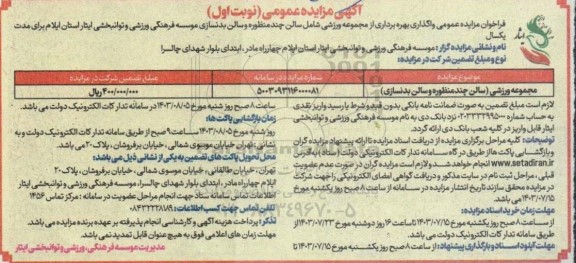 آگهی مزایده عمومی (نوبت اول)
فراخوان مزایده عمومی واگذاری بهره برداری از مجموعه ورزشی شامل سالن چند منظوره و سالن بدنسازی موسسه فرهنگی ورزشی و توانبخشی ایثار استان ایلام برای مدت یکسال
نام و نشانی مزایده گزار: موسسه فرهنگی ورزشی و توانبخشی ایثار استان ایلام چهارراه مادر، ابتدای بلوار شهدای چالسرا
نوع و مبلغ تضمین شرکت در مزایده:
موضوع مزایده
شماره مزایده در سامانه
مبلغ تضمین شرکت در مزایده
مجموعه ورزشی (سالن چند منظوره و سالن بدنسازی)
۴۰۰/۰۰۰/۰۰۰ ریال
لازم است مبلغ تضمین به صورت ضمانت نامه بانکی بدون قید و شرط یا رسید واریز نقدی
به حساب شماره نزد بانک دی به نام موسسه فرهنگی ورزشی و توانبخشی
ایثار قابل واریز در کلیه شعب بانک دی ارائه گردد.
توضیحات: کلیه مراحل برگزاری مزایده از دریافت اسناد مزایده تا ارائه پیشنهاد مزایده گران
و بازگشایی پاکت ها از طریق سامانه تدارکات الکترونیکی دولت (ستاد) به آدرس
www.setadiran.ir انجام خواهد شد و لازم است مزایده گران در صورت عدم عضویت
قبلی، مراحل ثبت نام در سایت مذکور و دریافت گواهی امضای الکترونیکی را جهت شرکت
در مزایده محقق سازند تاریخ انتشار مزایده در سامانه از ساعت ۸ صبح روز یکشنبه مورخ
۱۴۰۳/۰۷/۱۵ می باشد.
مهلت زمان خرید اسناد مزایده:
از ساعت ۸ صبح روز یکشنبه مورخ ۱۴۰۳/۰۷/۱۵ تا ساعت ۱۶ روز دوشنبه مورخ ۱۴۰۳/۰۷/۲۳ از
طریق سامانه تدارکات الکترونیک دولت می باشد.
مهلت آپلود اسناد و بارگذاری پیشنهاد: از ساعت ۸ صبح روز یکشنبه مورخ ۱۴۰۳/۰۷/۱۵ تا
ساعت ۸ صبح روز شنبه مورخ ۱۴۰۳/۰۸/۰۵ در سامانه تدارکات الکترونیک دولت می باشد.
زمان بازگشایی پاکت ها:
روز شنبه مورخ ۱۴۰۳/۰۸/۰۵ ساعت ۹ صبح از طریق سامانه تدارکات الکترونیک دولت و به
نشانی: تهران خیابان موسوی شمالی، خیابان برفروشان، پلاک ۲۰ می باشد.
محل تحویل پاکت های تضمین به یکی از نشانی ذیل می باشد:
تهران، خیابان طالقانی، خیابان موسوی شمالی، خیابان برفروشان، پلاک ۲۰
ایلام چهارراه مادر، ابتدای بلوار شهدای چالسرا، موسسه فرهنگی ورزشی و توانبخشی ایثار
اطلاعات تماس سامانه ستاد جهت انجام مراحل عضویت در سامانه: مرکز تماس ۱۴۵۶
تلفن تماس جهت کسب اطلاعات:
تذکر: پرداخت هزینه آگهی و کارشناسی انجام پذیرفته بر عهده برنده مزایده می باشد.
مهلت زمان های اعلامی فوق به هیچ عنوان قابل تمدید نمی باشد.
مدیریت موسسه فرهنگی، ورزشی و توانبخشی ایثار